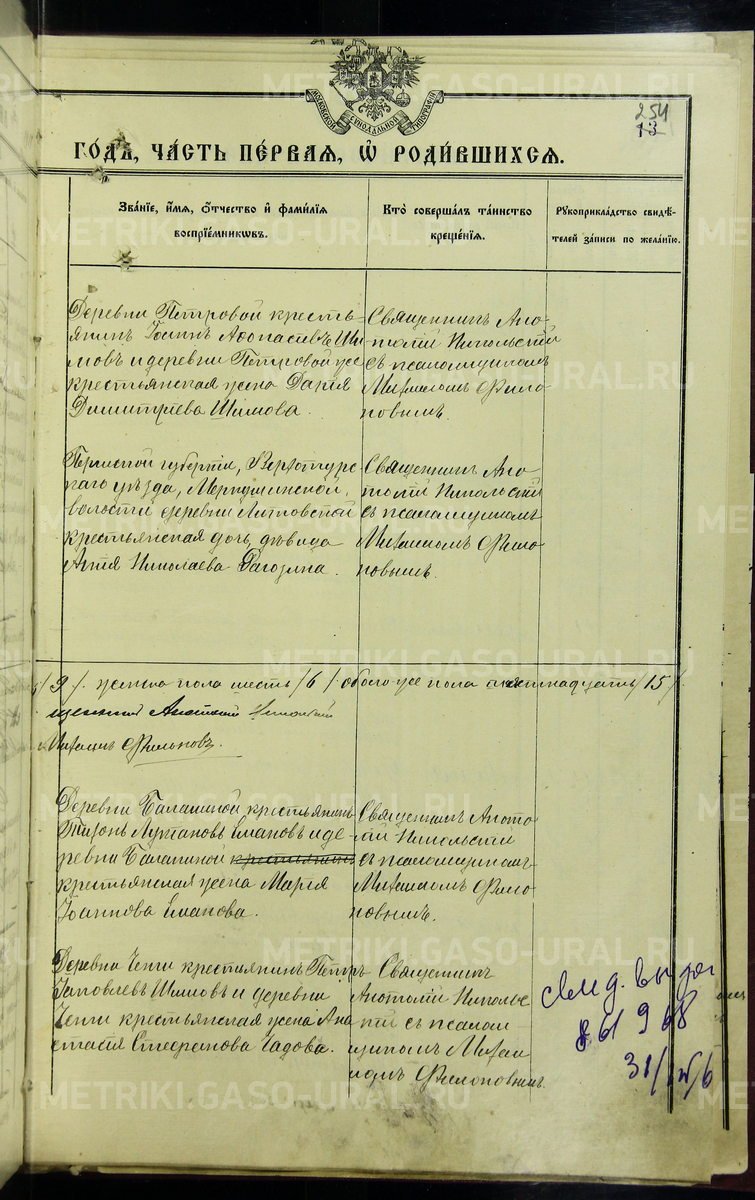 МОСКОВСКОЙ СѴНОДАЛЬНОЙ ТИПОГРАФІИ
254
13
ГОДЪ, ЧАСТЬ ПЕРВАЯ, Ѽ РОДИВШИХСЯ.
Званіе, имя, отчество и фамилія
воспріемникѡвъ.
Кто совершалъ таинство
крещенія.
Рукоприкладство свидѣ-
телей записи по желанію.
Деревни Петровой кресть-
янинъ Іоаннъ Ши-
мовъ и деревни Петровой же
крестьянская жена Дарія
Димитріева Шимова.
Священникъ Ана-
толій Никольскій
съ псаломщикомъ
Михаиломъ Фило-
новымъ.
Пермской губерніи, Верхотурс-
каго уѣзда, Меркушинской
волости деревни
крестьянская дочь, дѣвица
Николаева
Священникъ Ана-
толій Никольскій
съ псаломщикомъ
Михаиломъ Фило-
новымъ.
/9/. женска пола шесть /6/. обоего же пола пятнадцать /15/.
Анатолій Никольскій
Михаилъ Филоновъ.
Деревни Балакиной крестьянинъ
Тихонъ и де-
ревни Балакиной крестьянинъ
крестьянская жена Марія
Іоаннова
Священникъ Анато-
лій Никольскій
съ псаломщикомъ
Михаиломъ Фило-
новымъ.
Деревни крестьянинъ Петръ
Шимовъ и деревни
крестьянская жена Ана-
стасія Стефанова
Священникъ
Анатолій Никольс-
кій съ псалом-
щикомъ Михаи-
ломъ Филоновымъ.
METRIKI.GASO-URAL.RU